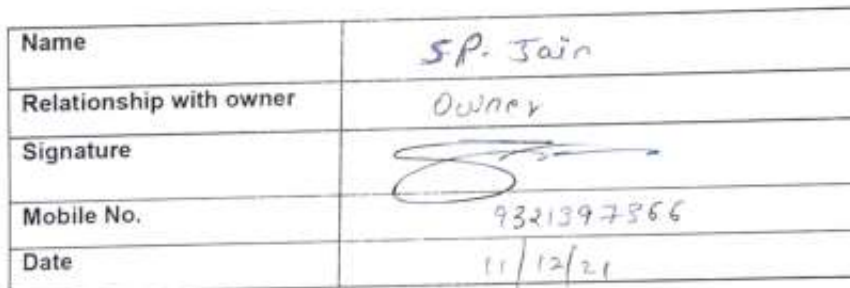 Name S.P. Jain
Relationship with owner Owner
Signature
Mobile No.
Date 11/12/21